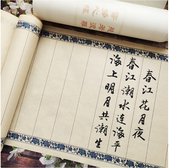 春江花月夜
春江潮水连海平
海上明月共潮生